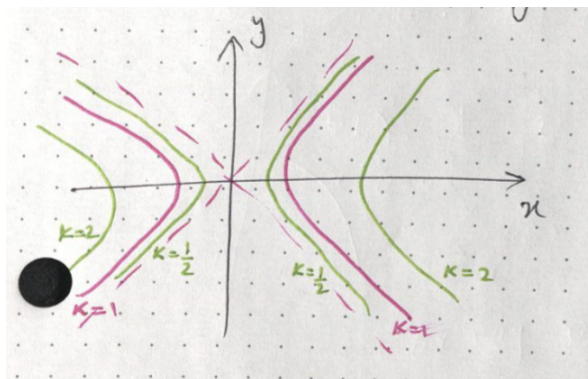 y
x
K=2
K=1/2
K=1/2
K=2
K=1
K=1